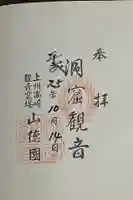 奉拝
洞窟観音
平成25年10月14日
上州高崎
観音山
山徳園